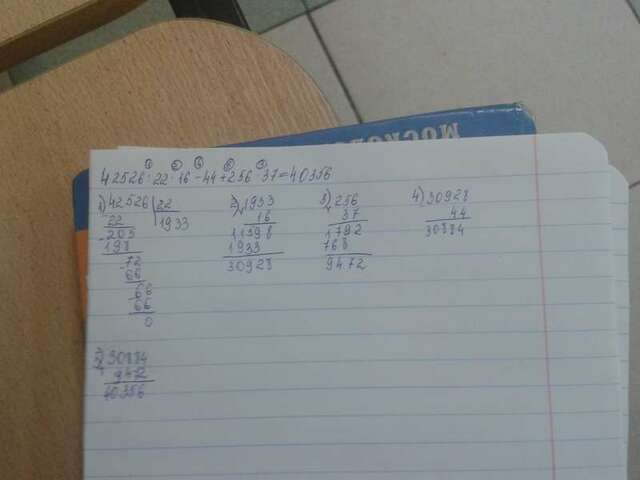 МОСКО
① ② ④ ⑤ ③
42526:22·16-44+256·37=40356
1) 42526 | 22
22 1933
205
198
72
66
66
66
0
2) 1933
16
11598
1933
30928
3) 256
37
1792
768
9472
4) 30928
44
30884
5) 30884
9472
40356